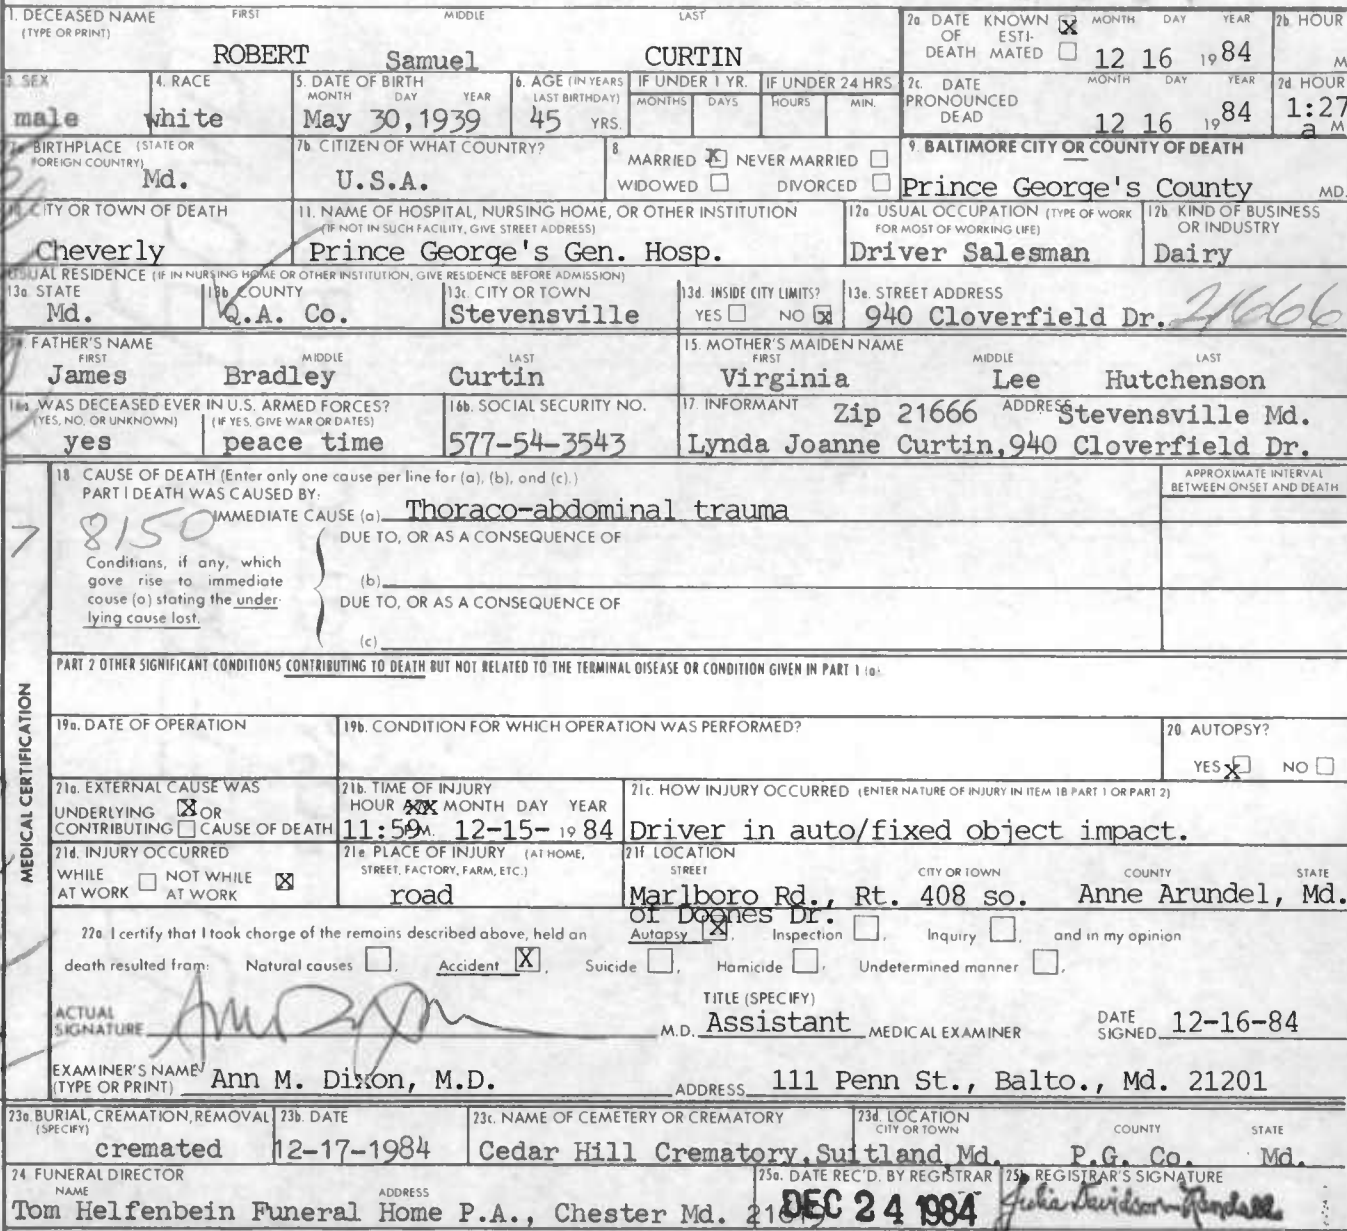 1. DECEASED NAME FIRST MIDDLE LAST
(TYPE OR PRINT)
ROBERT Samuel CURTIN
2a. DATE KNOWN X MONTH DAY YEAR 2b. HOUR
OF ESTI-
DEATH MATED 12 16 1984 M
3. SEX 4. RACE 5. DATE OF BIRTH 6. AGE (IN YEARS IF UNDER 1 YR. IF UNDER 24 HRS
MONTH DAY YEAR LAST BIRTHDAY) MONTHS DAYS HOURS MIN.
male white May 30,1939 45 YRS.
2c. DATE MONTH DAY YEAR 2d HOUR
PRONOUNCED
DEAD 12 16 1984 1:27 a M
7a BIRTHPLACE (STATE OR
FOREIGN COUNTRY)
Md.
7b. CITIZEN OF WHAT COUNTRY?
U.S.A.
8
MARRIED X NEVER MARRIED
WIDOWED DIVORCED
9. BALTIMORE CITY OR COUNTY OF DEATH
Prince George's County MD.
10. CITY OR TOWN OF DEATH
Cheverly
11. NAME OF HOSPITAL, NURSING HOME, OR OTHER INSTITUTION
(IF NOT IN SUCH FACILITY, GIVE STREET ADDRESS)
Prince George's Gen. Hosp.
12a USUAL OCCUPATION (TYPE OF WORK
FOR MOST OF WORKING LIFE)
Driver Salesman
12b. KIND OF BUSINESS
OR INDUSTRY
Dairy
USUAL RESIDENCE (IF IN NURSING HOME OR OTHER INSTITUTION, GIVE RESIDENCE BEFORE ADMISSION)
13a. STATE 13b. COUNTY 13c. CITY OR TOWN 13d. INSIDE CITY LIMITS? 13e. STREET ADDRESS
Md. Q.A. Co. Stevensville YES NO X 940 Cloverfield Dr. 21666
14. FATHER'S NAME
FIRST MIDDLE LAST
James Bradley Curtin
15. MOTHER'S MAIDEN NAME
FIRST MIDDLE LAST
Virginia Lee Hutchenson
16a WAS DECEASED EVER IN U.S. ARMED FORCES?
(YES, NO, OR UNKNOWN) (IF YES, GIVE WAR OR DATES)
yes peace time
16b. SOCIAL SECURITY NO.
577-54-3543
17. INFORMANT Zip 21666 ADDRESS Stevensville Md.
Lynda Joanne Curtin,940 Cloverfield Dr.
MEDICAL CERTIFICATION
18. CAUSE OF DEATH (Enter only one cause per line for (a), (b), and (c).)
PART I DEATH WAS CAUSED BY:
APPROXIMATE INTERVAL
BETWEEN ONSET AND DEATH
IMMEDIATE CAUSE (a) Thoraco-abdominal trauma
8150
DUE TO, OR AS A CONSEQUENCE OF
Conditions, if any, which
gave rise to immediate
cause (a) stating the under-
lying cause last.
(b)
DUE TO, OR AS A CONSEQUENCE OF
(c)
PART 2 OTHER SIGNIFICANT CONDITIONS CONTRIBUTING TO DEATH BUT NOT RELATED TO THE TERMINAL DISEASE OR CONDITION GIVEN IN PART 1 (a)
19a. DATE OF OPERATION 19b. CONDITION FOR WHICH OPERATION WAS PERFORMED? 20 AUTOPSY?
YES X NO
21a. EXTERNAL CAUSE WAS
UNDERLYING X OR
CONTRIBUTING CAUSE OF DEATH
21b. TIME OF INJURY
HOUR MONTH DAY YEAR
11:59 M. 12-15- 1984
21c. HOW INJURY OCCURRED (ENTER NATURE OF INJURY IN ITEM 18 PART 1 OR PART 2)
Driver in auto/fixed object impact.
21d. INJURY OCCURRED
WHILE NOT WHILE X
AT WORK AT WORK
21e PLACE OF INJURY (AT HOME,
STREET, FACTORY, FARM, ETC.)
road
21f LOCATION
STREET CITY OR TOWN COUNTY STATE
Marlboro Rd., Rt. 408 so. Anne Arundel, Md.
of Doones Dr.
22a. I certify that I took charge of the remains described above, held an Autopsy X, Inspection , Inquiry , and in my opinion
death resulted from: Natural causes , Accident X, Suicide , Homicide , Undetermined manner ,
TITLE (SPECIFY)
ACTUAL
SIGNATURE M.D. Assistant MEDICAL EXAMINER DATE
SIGNED 12-16-84
EXAMINER'S NAME
(TYPE OR PRINT) Ann M. Dixon, M.D. ADDRESS 111 Penn St., Balto., Md. 21201
23a. BURIAL, CREMATION, REMOVAL 23b. DATE 23c. NAME OF CEMETERY OR CREMATORY 23d. LOCATION
(SPECIFY) CITY OR TOWN COUNTY STATE
cremated 12-17-1984 Cedar Hill Crematory,Suitland,Md. P.G. Co. Md.
24 FUNERAL DIRECTOR
NAME ADDRESS
Tom Helfenbein Funeral Home P.A., Chester Md.
25a. DATE REC'D. BY REGISTRAR
DEC 24 1984
25b. REGISTRAR'S SIGNATURE
Julia Davidson-Randall